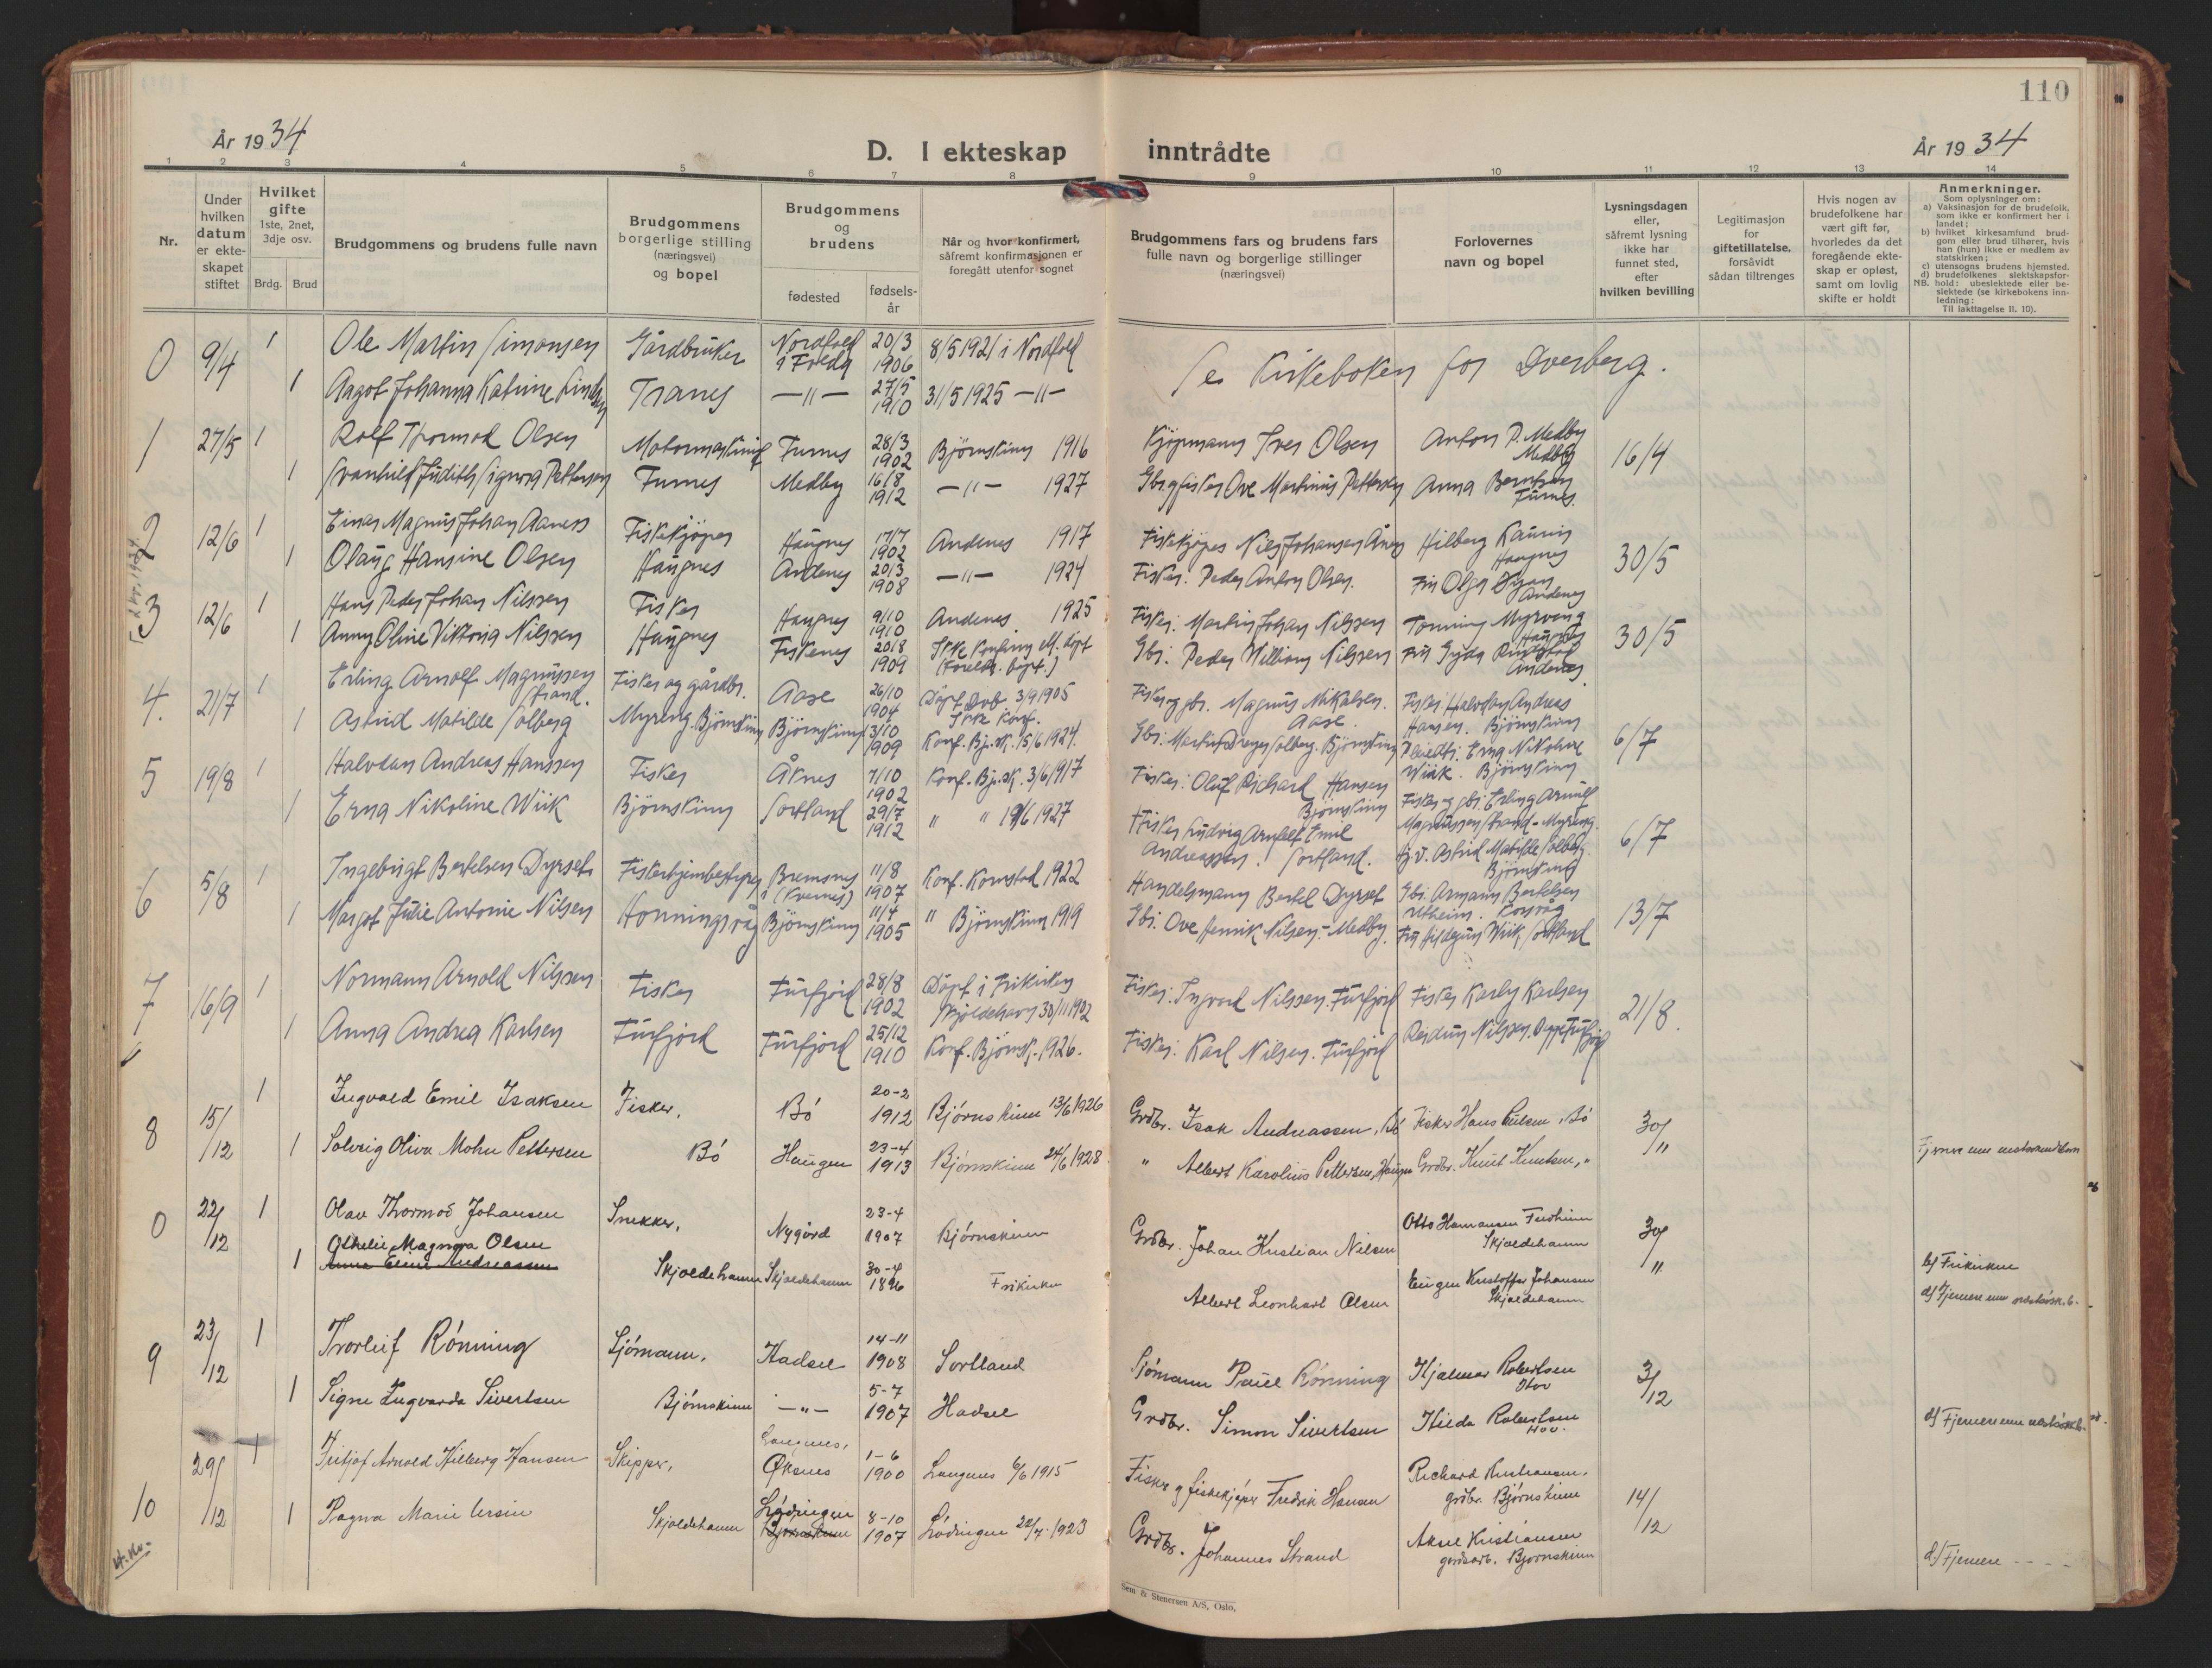 110
År 1934
D. I ekteskap inntrådte
År 1934
1 2 3 4 5 6 7 8 9 10 11 12 13 14
Nr.
Under hvilken datum er ekteskapet stiftet
Hvilket gifte 1ste, 2net, 3dje osv.
Brdg. Brud
Brudgommens og brudens fulle navn
Brudgommens borgerlige stilling (næringsvei) og bopel
Brudgommens og brudens
fødested
fødselsår
Når og hvor konfirmert, såfremt konfirmasjonen er foregått utenfor sognet
Brudgommens fars og brudens fars fulle navn og borgerlige stillinger (næringsvei)
Forlovernes navn og bopel
Lysningsdagen eller, såfremt lysning ikke har funnet sted, efter hvilken bevilling
Legitimasjon for giftetillatelse, forsåvidt sådan tiltrenges
Hvis nogen av brudefolkene har vært gift før, hvorledes da det foregående ekteskap er opløst, samt om lovlig skifte er holdt
Anmerkninger.
Som oplysninger om:
a) Vaksinasjon for de brudefolk, som ikke er konfirmert her i landet;
b) hvilket kirkesamfund brudgom eller brud tilhører, hvis han (hun) ikke er medlem av statskirken;
c) utensogns brudens hjemsted.
d) brudefolkenes slektskapsforhold: ubeslektede eller beslektede (se kirkebokens innledning:
NB.
Til iakttagelse II. 10).
0 9/4 1 Ole Martin Simonsen Gårdbruker Nordfold i Folda 20/3 1906 8/5 1921 i Nordfold
Se Kirkeboken for Dverberg.
1 Aagot Johanna Katrine Tranes —"— 27/5 1910 31/5 1925 —"—
1 27/5 1 Rolf Thormod Olsen Motormaskinist Furnes 28/3 1902 Bjørnskinn 1916 Kjøpmann Iver Olsen Anton P. Medby Medby 16/4
1 Svanhild Judith Signora Pettersen Furnes Medby 16/8 1912 —"— 1927 Gbr. og fisker Ove Martinus Pettersen Anna Berntsen Furnes.
2 12/6 1 Einar Magnus Johan Aaness Fiskekjøper Haugnes 17/7 1902 Andenes 1917 Fiskekjøper Nils Johansen Hilberg Haugnes 30/5
1 Olaug Hansine Olsen Haugnes Andenes 20/3 1908 —"— 1924 Fisker: Peder Anton Olsen. Fru Olga Andenes
3 12/6 1 Hans Peder Johan Nilssen Fisker Haugnes 9/10 1910 Andenes 1925 Fisker: Martin Johan Nilssen Myrvang Haugnes 30/5
1 Anny Oline Viktoria Nilssen Haugnes Fiskenes 20/8 1909 Ikke Konfirm. M. døpt (Foreldr. døpt.) Gbr: Peder Nilssen Fru Gyda Andenes.
4. 21/7 1 Erling Arnolf Magnussen Strand. Fisker og gårdbr. Aase 26/10 1904 Døpt Dvb. 3/9 1905 Ikke Konf. Fisker og gbr. Magnus Mikalsen. Aase. Fisker Halvdan Andreas Hansen. Bjørnskinn 6/7
1 Astrid Matilde Solberg Myreng. Bjørnskinn Bjørnskinn 3/10 1909 Konf. Bj.sk. 15/6 1924. Gbr: Martin Dreyer Solberg. Bjørnskinn Erna Nikoline Wiik. Bjørnskinn
5 19/8 1 Halvdan Andreas Hanssen Fisker Åknes 7/10 1902 Konf. Bj.sk. 3/6 1917 Fisker: Oluf Richard Hansen Bjørnskinn Fisker og gbr. Erling Arnulf Magnussen Strand - Myreng. 6/7
1 Erna Nikoline Wiik Bjørnskinn Sortland 29/7 1912 " " 19/6 1927 Fisker Ludvig Arnulf Emil Andreassen. Sortland. Astrid Matilde Solberg. Bjørnskinn
6 5/8 1 Ingebrigt Bertelsen Dyrset Fiskerhjembestyrer Bremsnes i (Kvernes) 11/8 1907 Konf. Kornstad 1922 Handelsmann Bertel Dyrset Gbr. Armann Bertelsen 13/7
1 Margot Julie Antonie Nilsen Honningsvåg Bjørnskinn 11/4 1905 " Bjørnskinn 1919 Gbr. Ove Henrik Nilsen - Medby. Fru Hildegun Wiik, Sortland
7 16/9 1 Normann Arnold Nilssen Fisker Furfjord 28/8 1902 Døpt i Frikirken Skjoldehavn 30/11 1902 Fisker: Ingvard Nilssen. Furfjord Fisker Karly Karlsen 21/8.
1 Anna Andrea Karlsen Furfjord Furfjord 25/12 1910 Konf. Bjørnsk. 1926. Fisker: Karl Nilsen. Furfjord Reidun Nilssen.
8 15/12 1 Ingvald Emil Isaksen Fisker, Bø 20-2 1912 Bjørnskinn 13/6 1926 Grdbr. Isak Andreassen, Bø Fisker Hans Nilsen, Bø 30/11
1 Solveig Oliva Mohn Pettersen Bø Haugen 23-4 1913 Bjørnskinn 24/6 1928. " Albert Karolius Pettersen, Haugen Grdbr. Knut Knutsen, " Fjernere enn nestsøskenbarn
0 22/12 1 Olav Thormod Johansen Snekker, Nygård 23-4 1907 Bjørnskinn Grdbr. Johan Kristian Nilsen Otto Hermansen Skjoldehamn 30/11
1 Othelie Magnora Olsen
Anna Eline Andreassen
Skjoldehamn Skjoldehamn 30-4 1896 Frikirken Albert Leonhart Olsen Eugen Kristoffer Johansen Skjoldehamn b) Frikirken
d) Fjernere enn nestsøsk.b.
9 23/12 1 Thorleif Rønning Sjømann, Hadsel 14-11 1908 Sortland Sjømann Paul Rønning Hjalmar Robertsen Hov 3/12
1 Signe Ingvarda Sivertsen Bjørnskinn —"— 5-7 1907 Hadsel Grdbr. Simon Sivertsen Hilda Robertsen Hov. d) Fjernere enn nestsøskb.
10 29/12 1 Fritjof Arnold Hilberg Hansen Skipper, Langnes, Øksnes 1-6 1900 Langnes 6/6 1915 Fisker og fiskekjøper Fredrik Hansen Richard Kristiansen, grdbr. Bjørnskinn 14/12
1 Ragna Marie Skjoldehamn Lødingen Bjørnskinn 8-10 1907 Lødingen 22/7-1923 Grdbr. Johannes Strand Aksel Kristiansen gårdsarb. Bjørnskinn d.) Fjernere - - - -
4. Kv.
Sem & Stenersen A/S, Oslo.